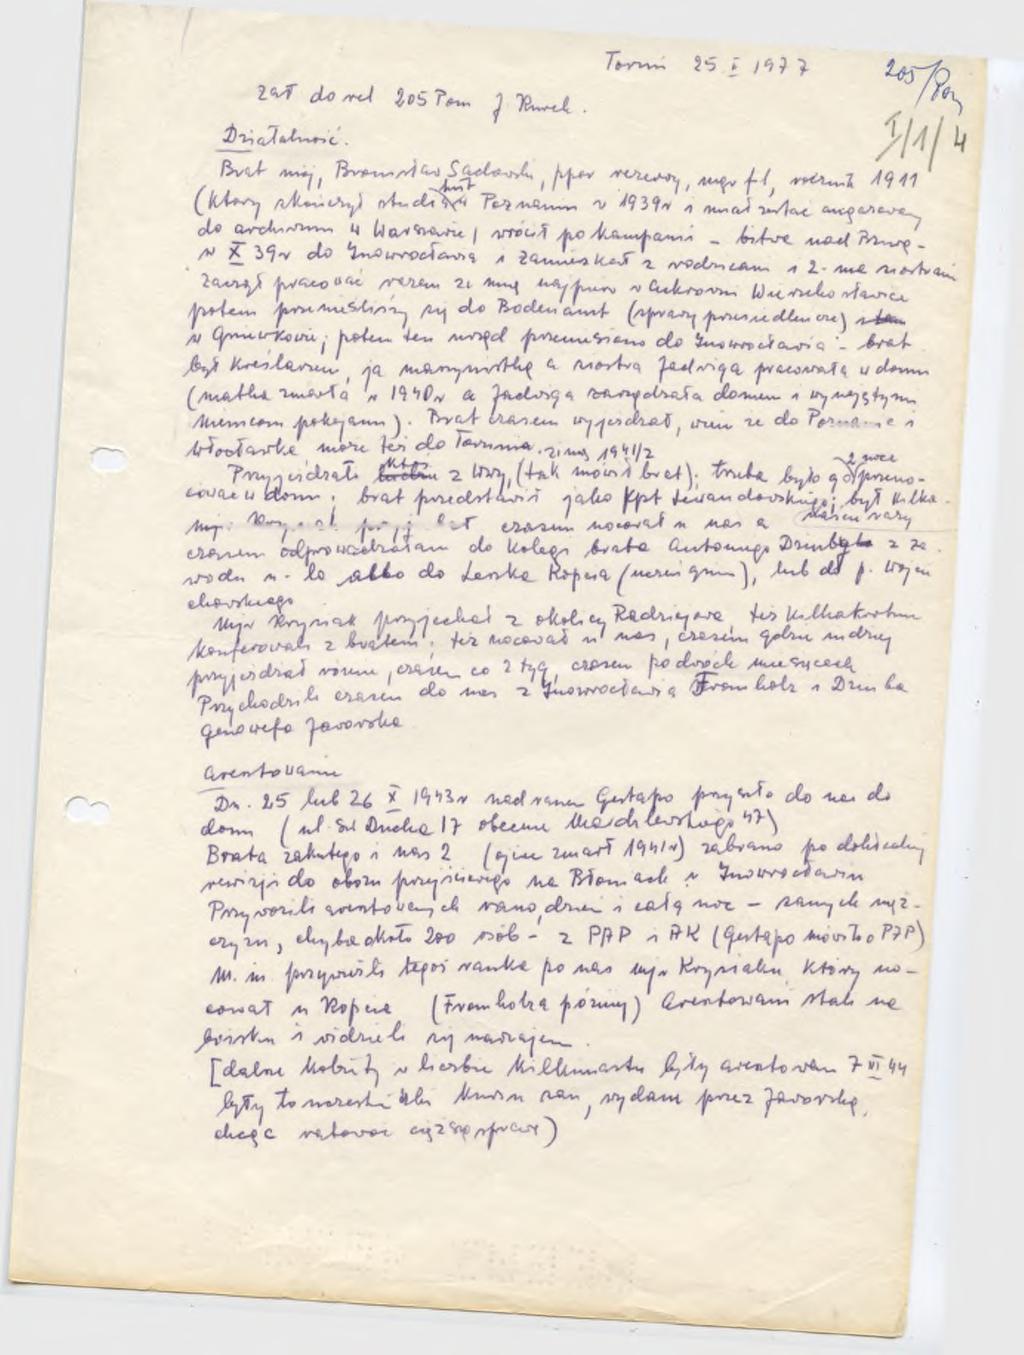 Toruń 25 I 1977
205/Pom
I/1/4
Zał do rel 205 Pom J. Kurek.
Działalność.
Brat mój, Bronisław Sądowski, ppor rezerwy, mgr fil, rocznik 1911
(który skończył studia hist w Poznaniu w 1939r i miał zostać angażowany
do archiwum w Warszawie) wrócił po kampanii – bitwa nad Bzurą –
w X 39r do Inowrocławia i zamieszkał z rodzicami i 2-ma siostrami
zaczął pracować razem ze mną najpierw w Cukrowni Wierzchosławice
potem przenieśliśmy się do Bodenamt (sprawy przesiedleńcze)
w Gniewkowie; potem ten urząd przeniesiono do Inowrocławia – brat
był kreślarzem, ja maszynistką a siostra Jadwiga pracowała w domu
(matka zmarła w 1940r a Jadwiga zarządzała domem i wynajętymi
Niemcom pokojami). Brat czasem wyjeżdżał, wiem że do Poznania i
Włocławka może też do Torunia. zimą 1941/2
Przyjeżdżał ktoś z Wwy, (tak mówił brat); trzeba było go 2 noce przeno-
cować w domu; brat przedstawił jako kpt Lewandowskiego; był kilka
razy czasem nocował u nas a
czasem odprowadzałam do kolegi brata Antoniego Dziuby z za-
wodu n-la albo do Leszka Kopcia (uczeń gimn), lub do p. Wojcie
chowskiego
Mjr Krysiak przyjechał z okolicy Radziejowa też kilkakrotnie
konferowali z bratem; też nocował u nas, czasem gdzie indziej
przyjeżdżał różnie, czasem co 2 tyg, czasem po dwóch miesiącach
Przychodzili czasem do nas z Inowrocławia Fromholz i Dziuba
Genowefa Jaworska
Aresztowanie
Dn. 25 lub 26 X 1943r nad ranem Gestapo przyszło do nas do
domu (ul. Św Ducha 17 obecnie Marchlewskiego 47)
Brata zakutego i nas 2 (ojciec zmarł 1941r) zabrano po dokładnej
rewizji do obozu przejściowego na Błoniach w Inowrocławiu
Przywozili aresztowanych rano, dzień i całą noc – samych męż-
czyzn, chyba około 200 osób – z PAP i AK (Gestapo mówiło PAP)
M. in. przywieźli tegoż ranka po nas mjr Krysiaka, który no-
cował u Kopcia (Fromholza później) Aresztowani stali na
boisku i widzieli się nawzajem.
[dalsze kobiety w liczbie kilkunastu były aresztowane 7 VI 44
były to uczestniczki kursu san, wydane przez Jaworską,
chcąc ratować ciężką sprawę)